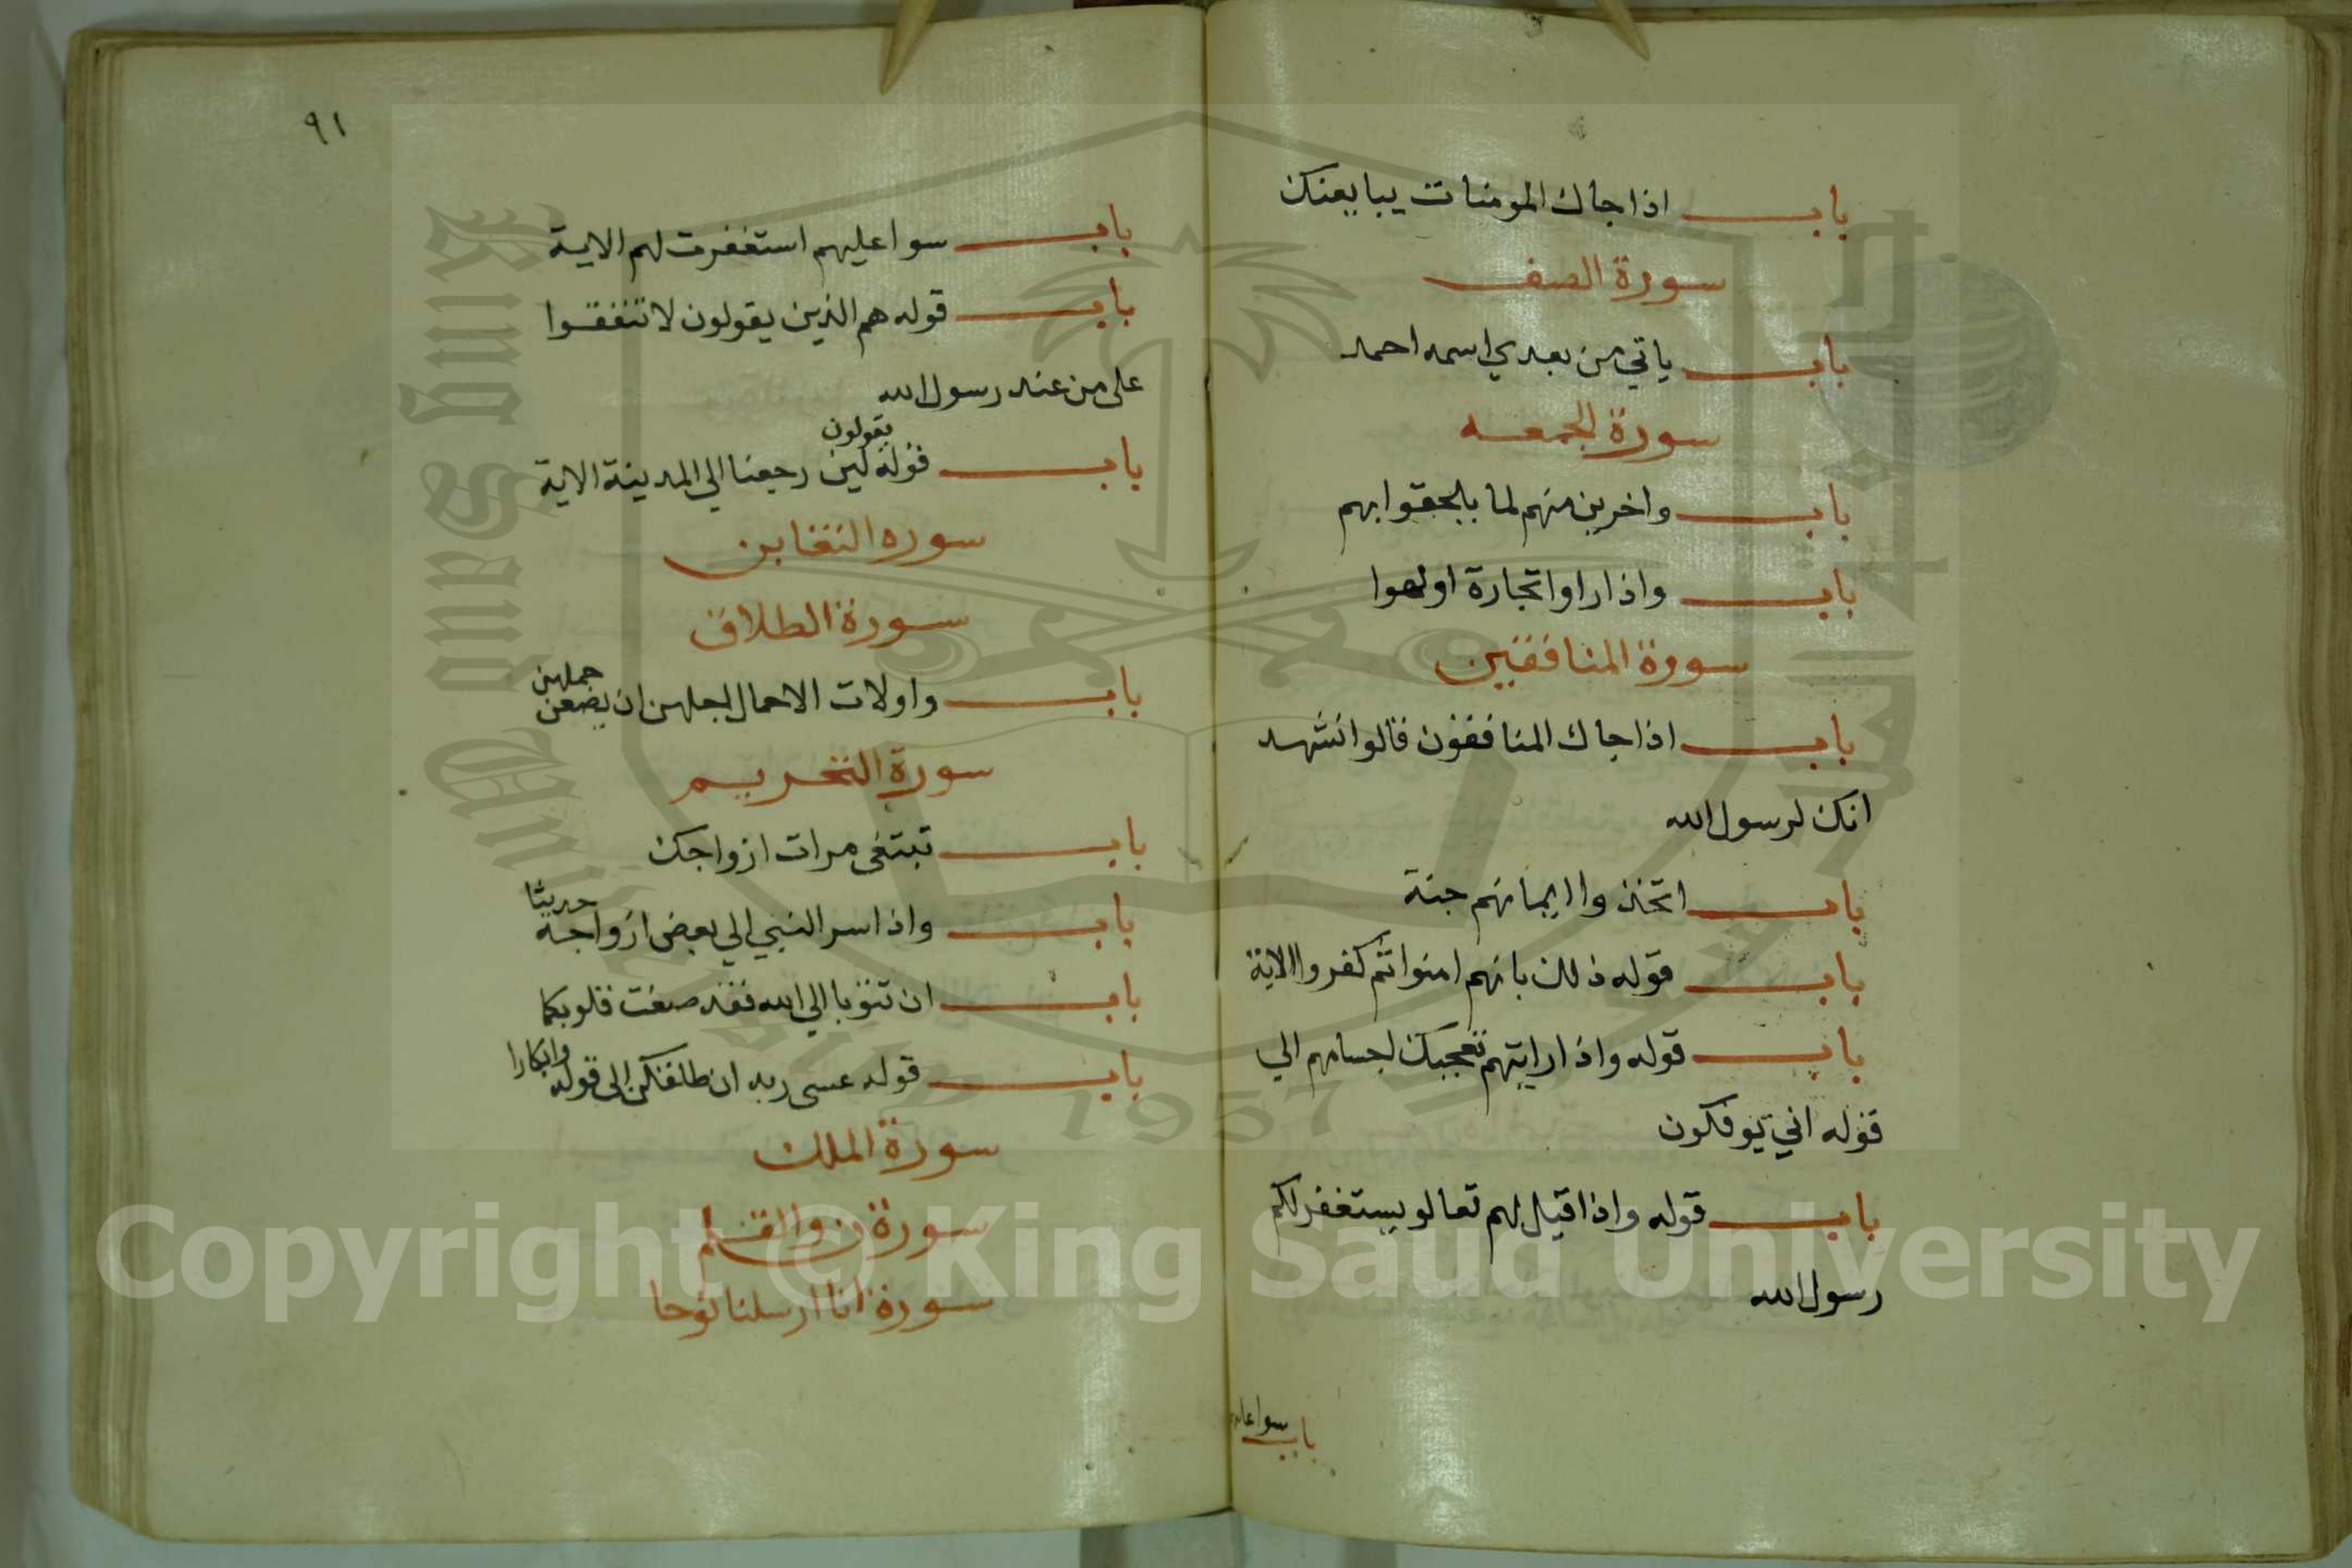 باب اذا جاك المومنات يبايعنك
سورة الصف
باب ياتي من بعدي اسمه احمد
سورة الجمعه
باب واخرين منهم لما يلحقوا بهم
باب واذا راوا تجارة او لهوا
سورة المنافقين
باب اذا جاك المنافقون قالوا نشهد
انك لرسول الله
باب اتخذوا ايمانهم جنة
باب قوله ذلك بانهم امنوا ثم كفروا الاية
باب قوله واذا رايتهم تعجبك اجسامهم الي
قوله اني يوفكون
باب قوله واذا قيل لهم تعالو يستغفر لكم
رسول الله
باب سوا عليهم
٩١
باب سوا عليهم استغفرت لهم الاية
باب قوله هم الذين يقولون لا تنفقوا
على من عند رسول الله
باب قوله يقولون لين رجعنا الي المدينة الاية
سوره التغابن
سورة الطلاق
باب واولات الاحمال اجلهن ان يضعن حملهن
سورة التحريم
باب تبتغي مرات ازواجك
باب واذ اسر النبي الي بعض ازواجه حديثا
باب ان تتوبا الي الله فقد صغت قلوبكما
باب قوله عسى ربه ان طلقكن الى قوله وابكارا
سورة الملك
سورة ن والقلم
سورة انا ارسلنا نوحا
King Saud University
1957
Copyright © King Saud University